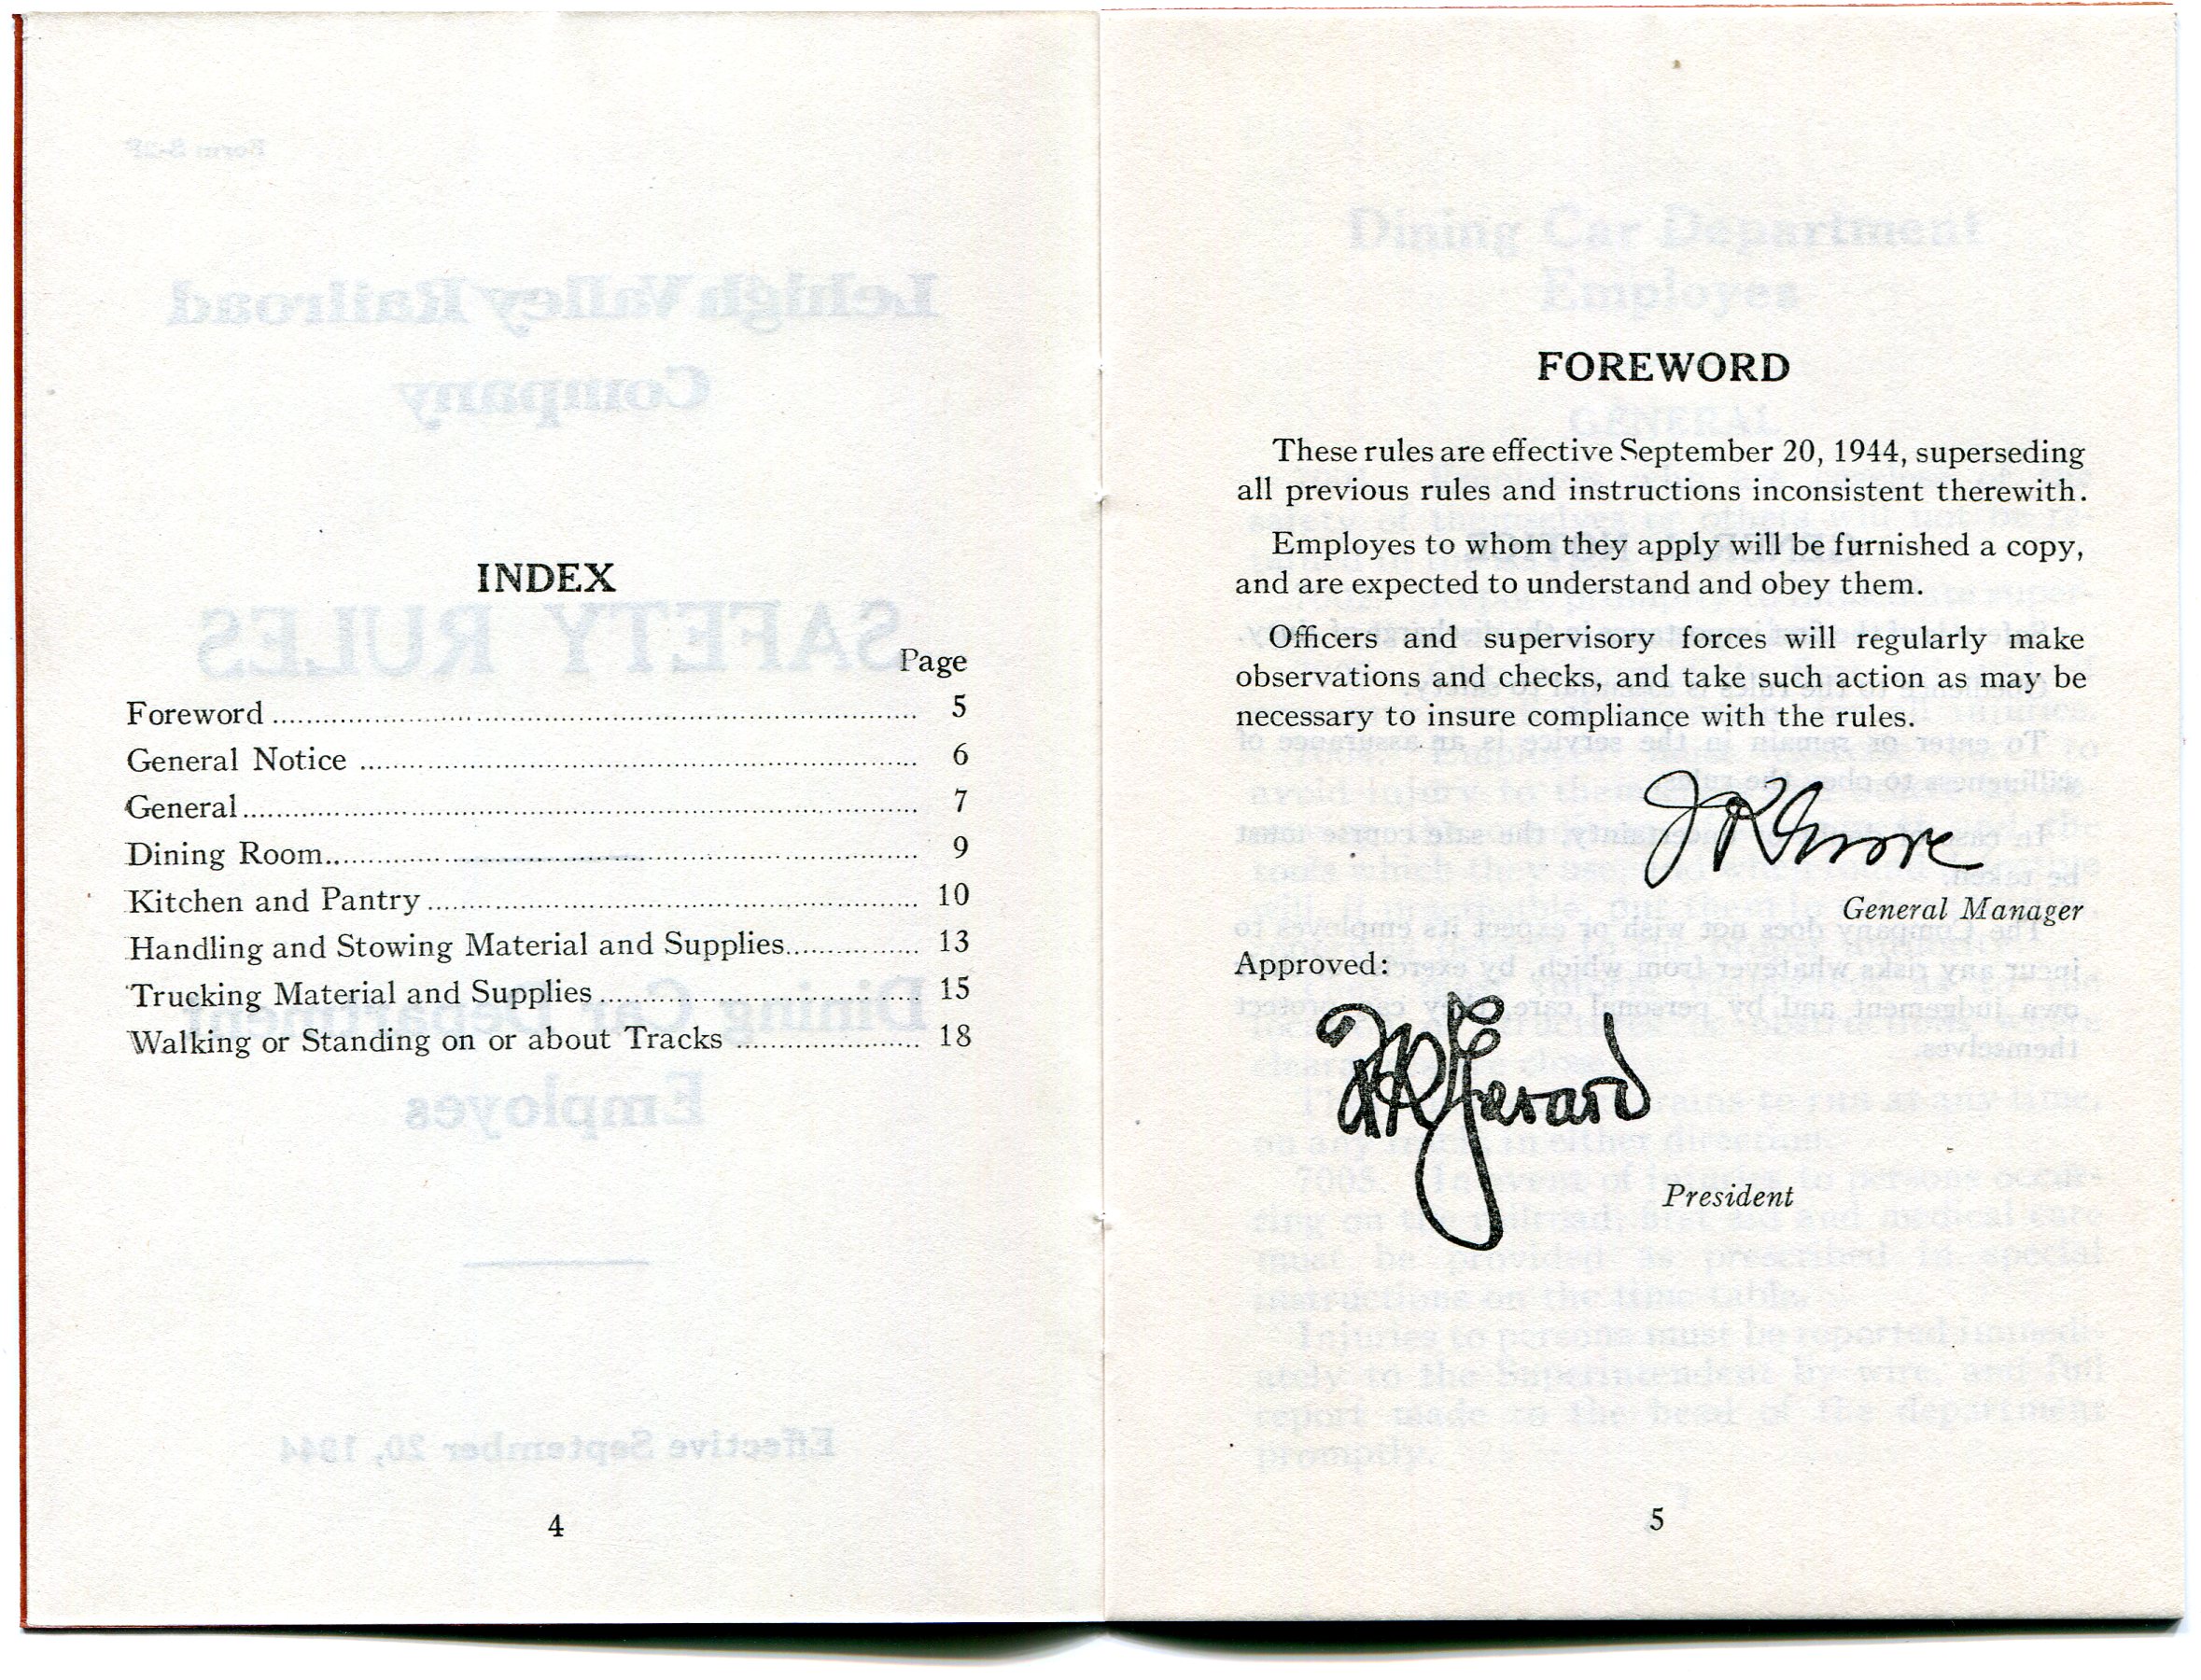 INDEX
Page
Foreword 5
General Notice 6
General 7
Dining Room 9
Kitchen and Pantry 10
Handling and Stowing Material and Supplies 13
Trucking Material and Supplies 15
Walking or Standing on or about Tracks 18
4
FOREWORD
These rules are effective September 20, 1944, superseding
all previous rules and instructions inconsistent therewith.
Employes to whom they apply will be furnished a copy,
and are expected to understand and obey them.
Officers and supervisory forces will regularly make
observations and checks, and take such action as may be
necessary to insure compliance with the rules.
General Manager
Approved:
President
5
Form S-2F
Lehigh Valley Railroad
Company
SAFETY RULES
Dining Car Department
Employes
Effective September 20, 1944
Dining Car Department
Employes
GENERAL